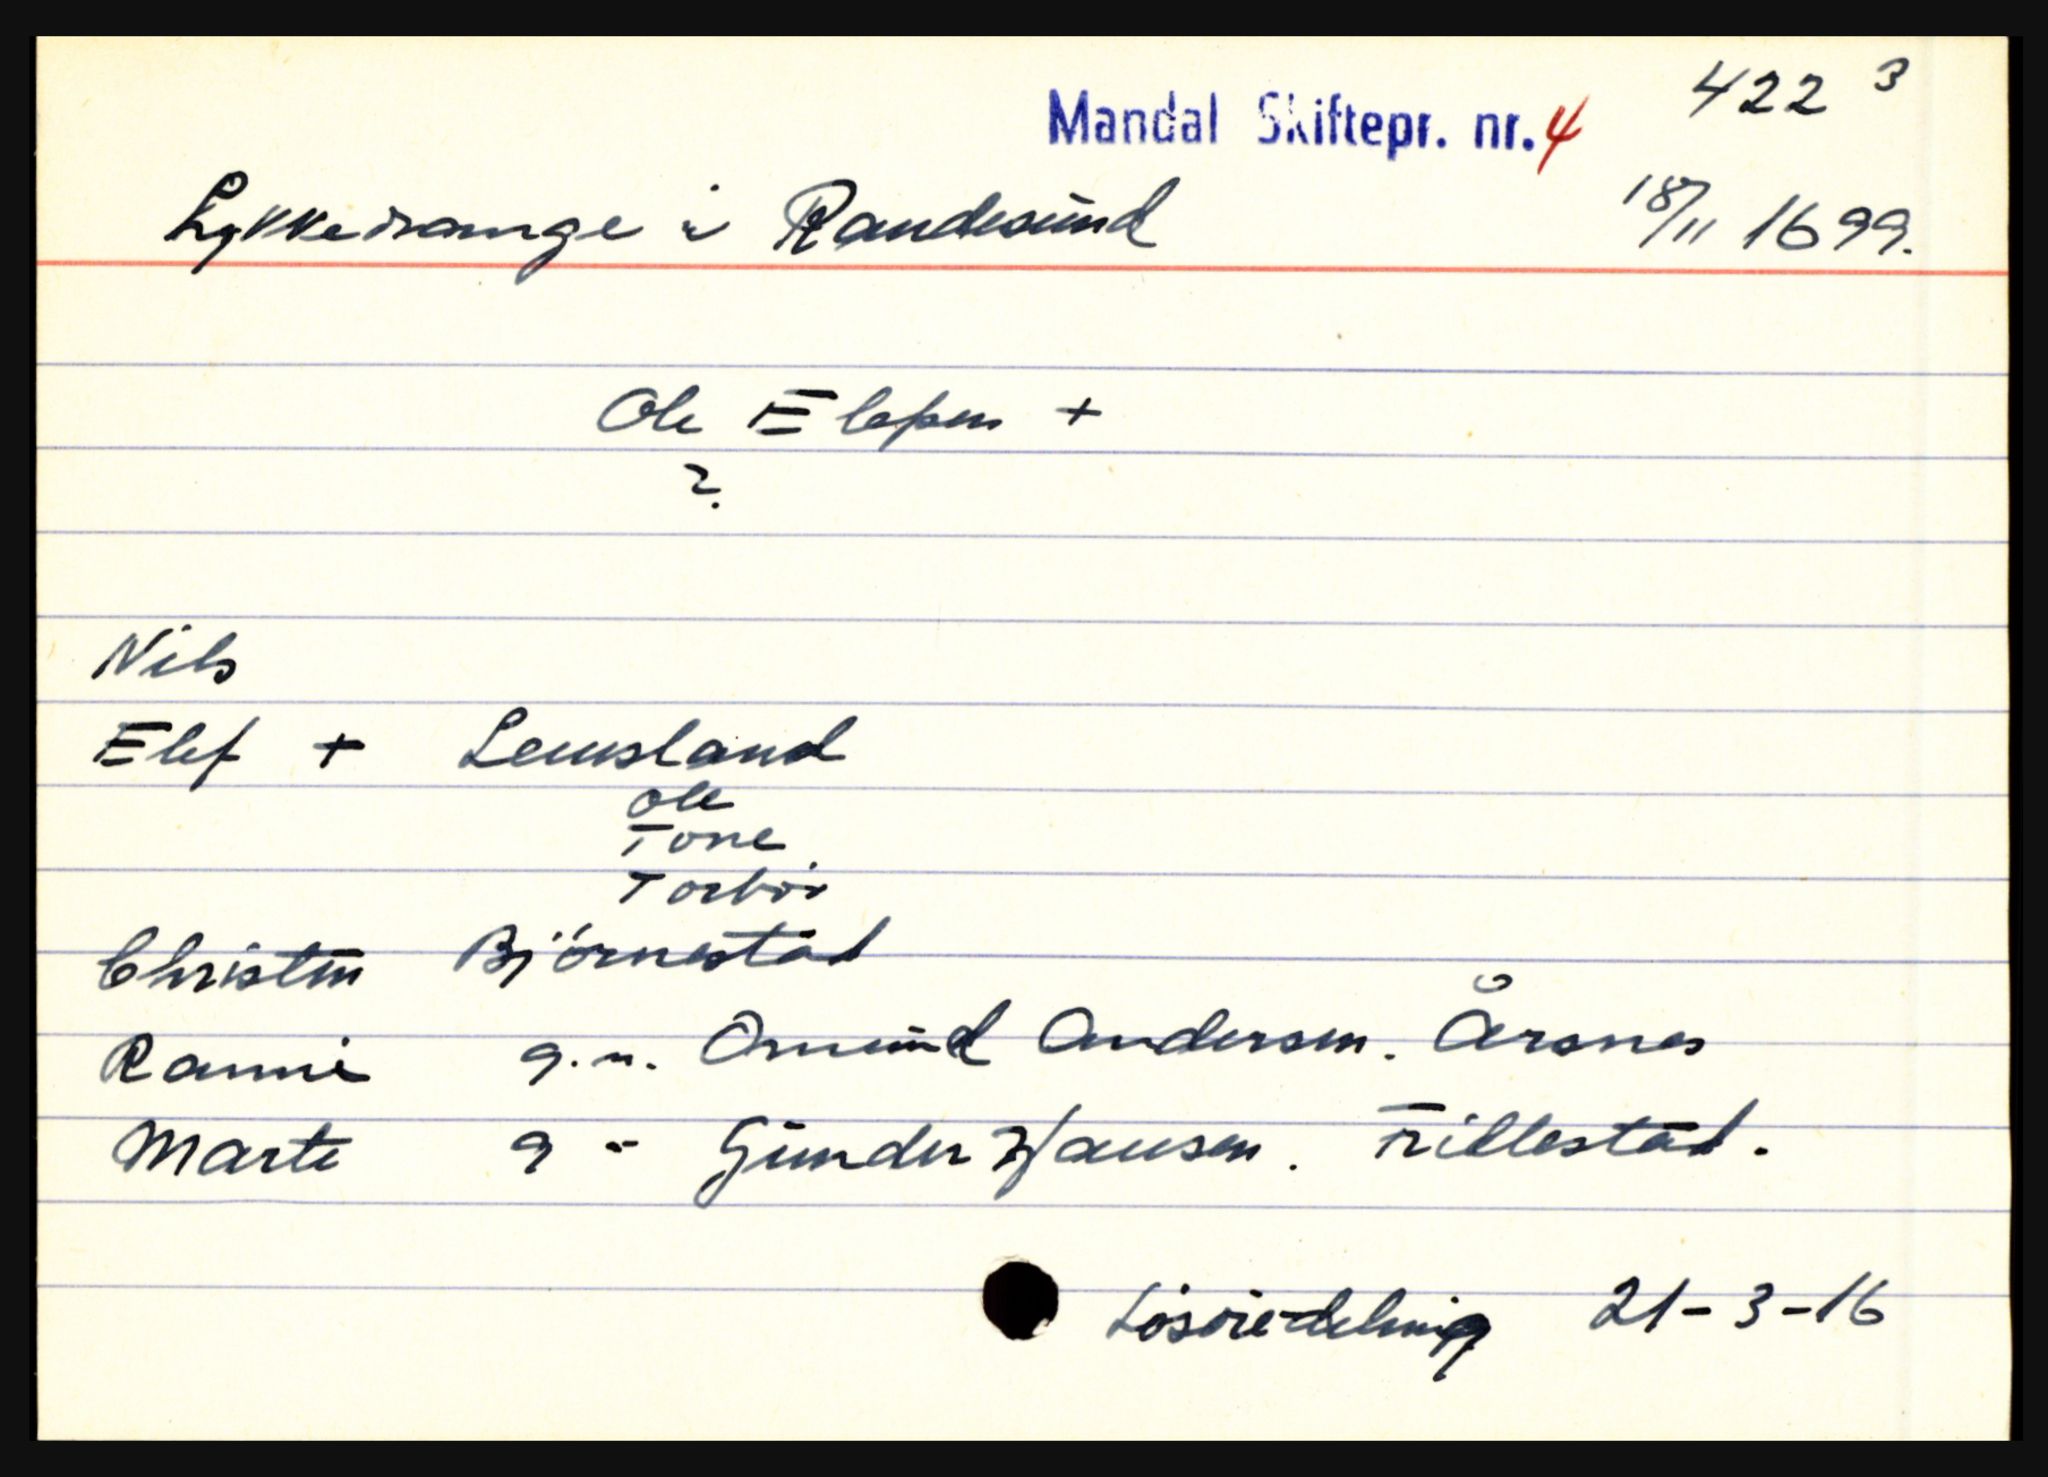 422 3
Mandal Skiftepr. nr. 4
Lykkedrange i Randesund 18/11 1699.
Ole Elefsen +
?
Nils
Elef + Leusland
Ole
Tone
Torbör
Christin Björnestad
Ranni g.m. Omund Andersen. Årsnes
Marte g " Gunder Hansen. Frillestad.
Lösöredeling 21-3-16